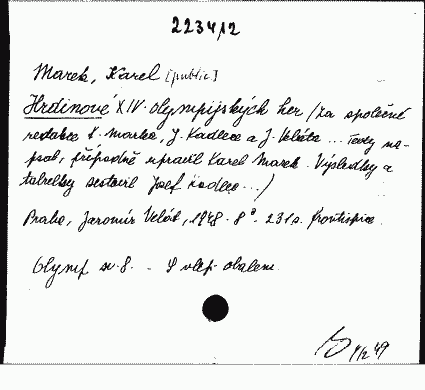 22344/2
Marek, Karel [public]
Hrdinové XIV. olympijských her /Za společné
redakce K. Marka, J. Kadlece a J. Veláta ... Texty na-
psal, případně upravil Karel Marek. Výsledky a
tabulky sestavil Josef Kadlec .../
Praha, Jaromír Velát, 1948. 8°. 231 s. frontispice.
Olymp sv. 8. - S vlep. obálem.
4/2 49